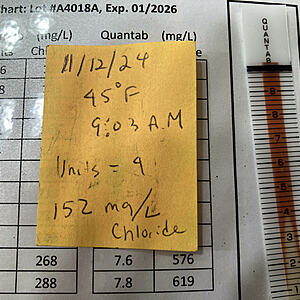 hart: Lot #A4018A, Exp. 01/2026
its Ch Quantab (mg/L)
11/12/24
45°F
9:03 A.M
Units = 4
152 mg/L
Chloride
268 7.6 576
288 7.8 619
QUANTAB